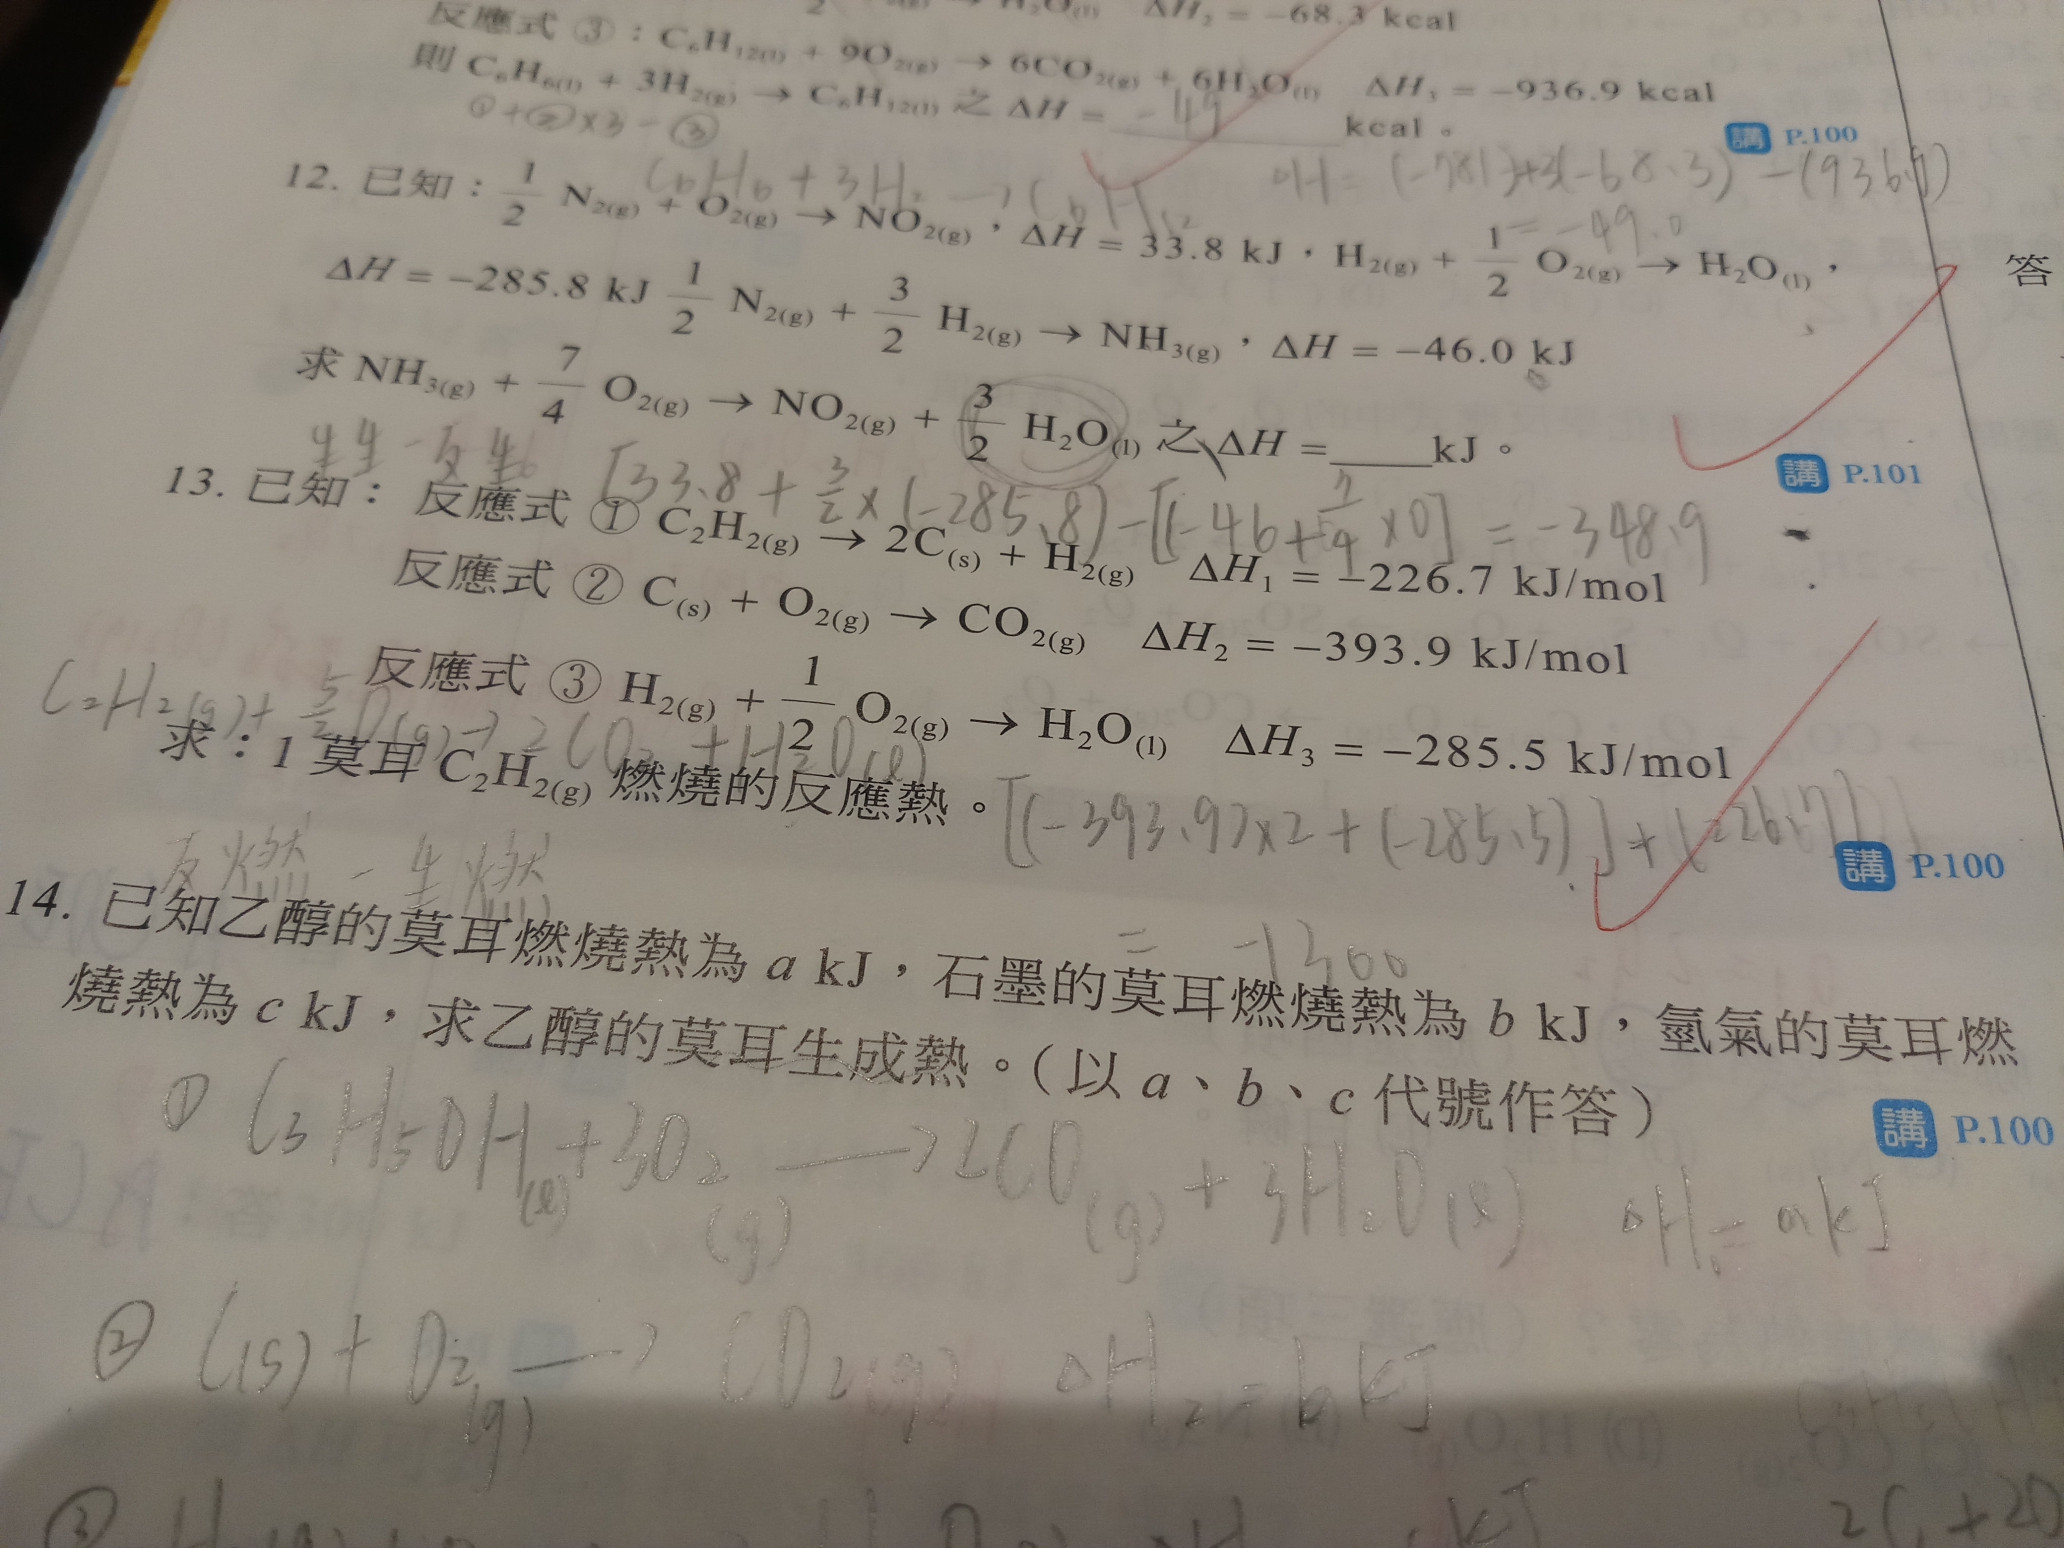 H₂O(l) ΔH₂ = −68.3 kcal
反應式 ③：C₆H₁₂(l) + 9O₂(g) → 6CO₂(g) + 6H₂O(l) ΔH₃ = −936.9 kcal
則 C₆H₆(l) + 3H₂(g) → C₆H₁₂(l) 之 ΔH = -49 kcal。
①+②×3−③
講 P.100
C₆H₆ + 3H₂ → C₆H₁₂
ΔH = (-781)+3(-68.3) −(936.9)
= −49.0
12. 已知：1/2 N₂(g) + O₂(g) → NO₂(g)，ΔH = 33.8 kJ，H₂(g) + 1/2 O₂(g) → H₂O(l)，
ΔH = −285.8 kJ 1/2 N₂(g) + 3/2 H₂(g) → NH₃(g)，ΔH = −46.0 kJ
求 NH₃(g) + 7/4 O₂(g) → NO₂(g) + 3/2 H₂O(l) 之 ΔH = ____kJ。
講 P.101
生生 − 反生
[33.8 + 3/2 × (-285.8) − [(-46 + 7/4 ×0] = −348.9
13. 已知： 反應式 ① C₂H₂(g) → 2C(s) + H₂(g) ΔH₁ = −226.7 kJ/mol
反應式 ② C(s) + O₂(g) → CO₂(g) ΔH₂ = −393.9 kJ/mol
反應式 ③ H₂(g) + 1/2 O₂(g) → H₂O(l) ΔH₃ = −285.5 kJ/mol
C₂H₂(g) + 5/2 O(g) → 2CO₂ + H₂O(l)
求：1 莫耳 C₂H₂(g) 燃燒的反應熱。
[(-393.9)×2 + (-285.5)] + (-226.7)
講 P.100
反燃 − 生燃
= −1300
14. 已知乙醇的莫耳燃燒熱為 a kJ，石墨的莫耳燃燒熱為 b kJ，氫氣的莫耳燃
燒熱為 c kJ，求乙醇的莫耳生成熱。（以 a、b、c 代號作答）
講 P.100
① C₃H₅OH(l) + 3O₂(g) → 2CO(g) + 3H₂O(l) ΔH₁ = a kJ
② C(s) + O₂(g) → CO₂(g) ΔH₂ = b kJ
③
kJ
答